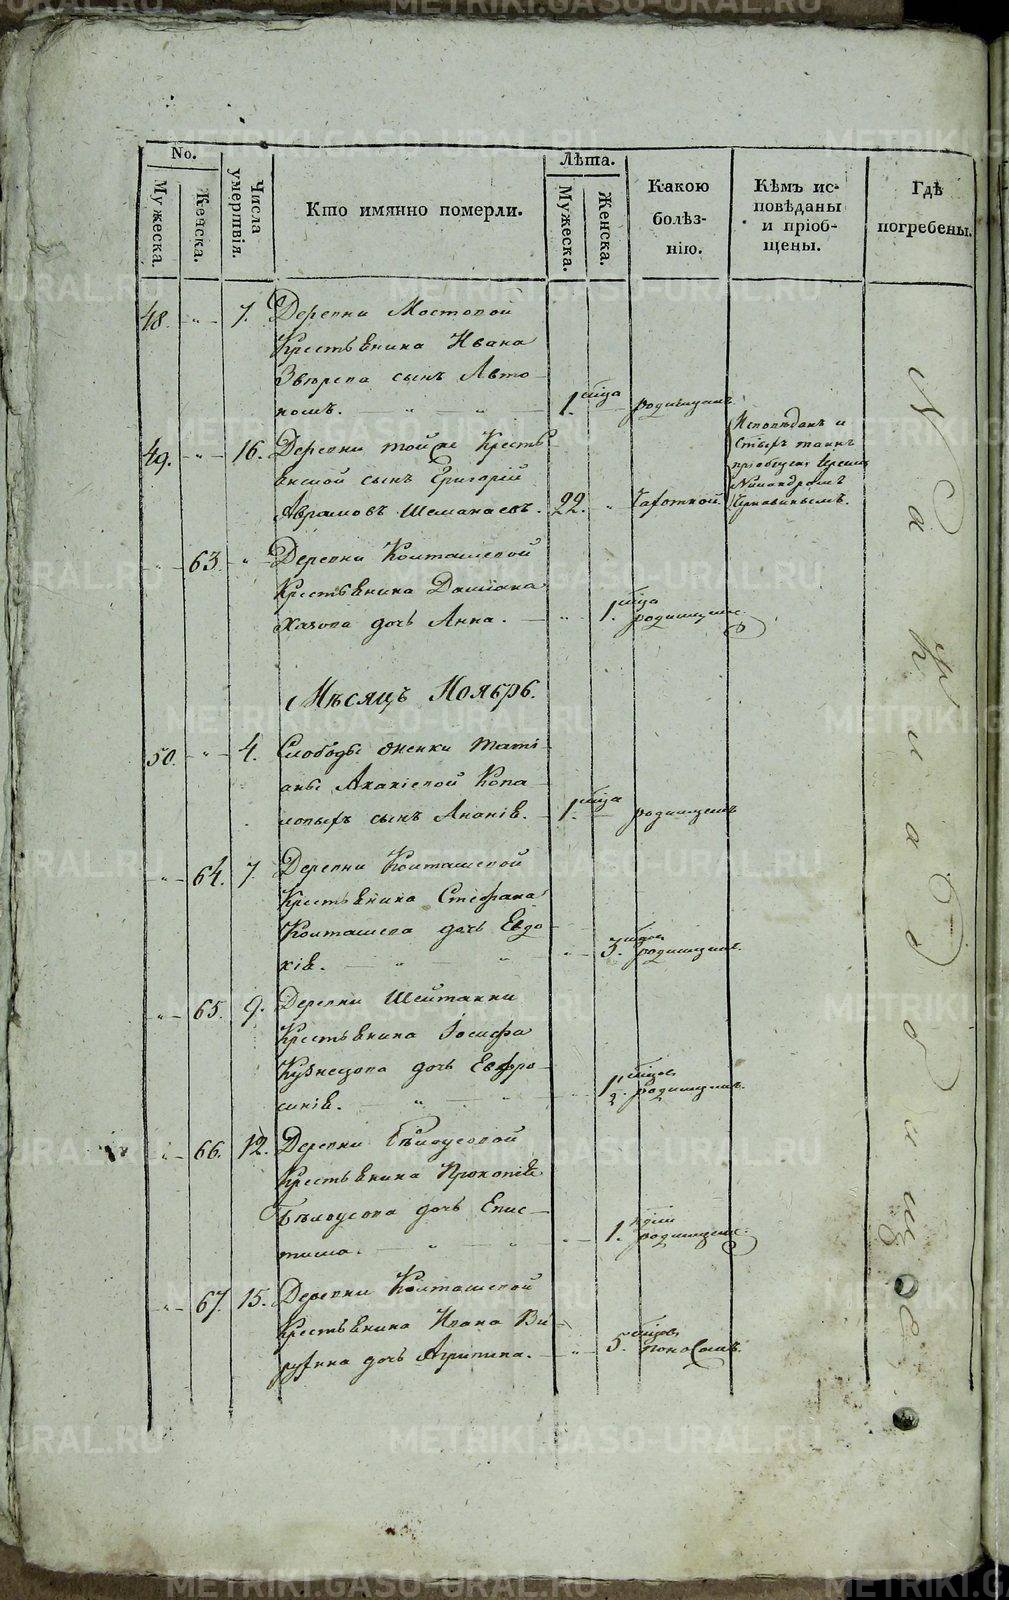 No.
Мужеска.
Женска.
Числа умертвія.
Кто имянно померли.
Лѣта.
Мужеска.
Женска.
Какою болѣз-
нію.
Кѣмъ ис-
повѣданы
и пріоб-
щены.
Гдѣ
погребены.
48. 7. Деревни Мостовой
Крестьянина Ивана
Зверева сынъ Авто-
номъ. 1. мца родимцомъ.
49. 16. Деревни той же Кресть
янской сынъ Григорій
Аврамовъ Шеманаевъ. 22. Чахоткой.
Исповѣданъ и
Стыхъ таинъ
пріобщенъ Іереем
Никандромъ
63. Деревни Колташевой
Крестьянина Даміана
дочь Анна. 1. мца родимцомъ.
Мѣсяцъ Ноябрь.
50. 4. Слободы женки Тати-
аны Акакіевой Копа-
ловыхъ сынъ Ананія. 1. мца родимцомъ
64. 7. Деревни Колташевой
Крестьянина Стефана
Колташева дочь Евдо
кія. 3. родимцомъ.
65. 9. Деревни Шейтанки
Крестьянина Іосифа
Кузнецова дочь Евфро-
синія. 1½. мцов родимцомъ.
66. 12. Деревни Бѣлоусовой
Крестьянина Прокопія
Бѣлоусова дочь Епис-
тима. 1. родимцомъ.
67. 15. Деревни Колташевой
Крестьянина Ивана
дочь Агрипина. 5. мцов поносомъ.
На кладбище
METRIKI.GASO-URAL.RU